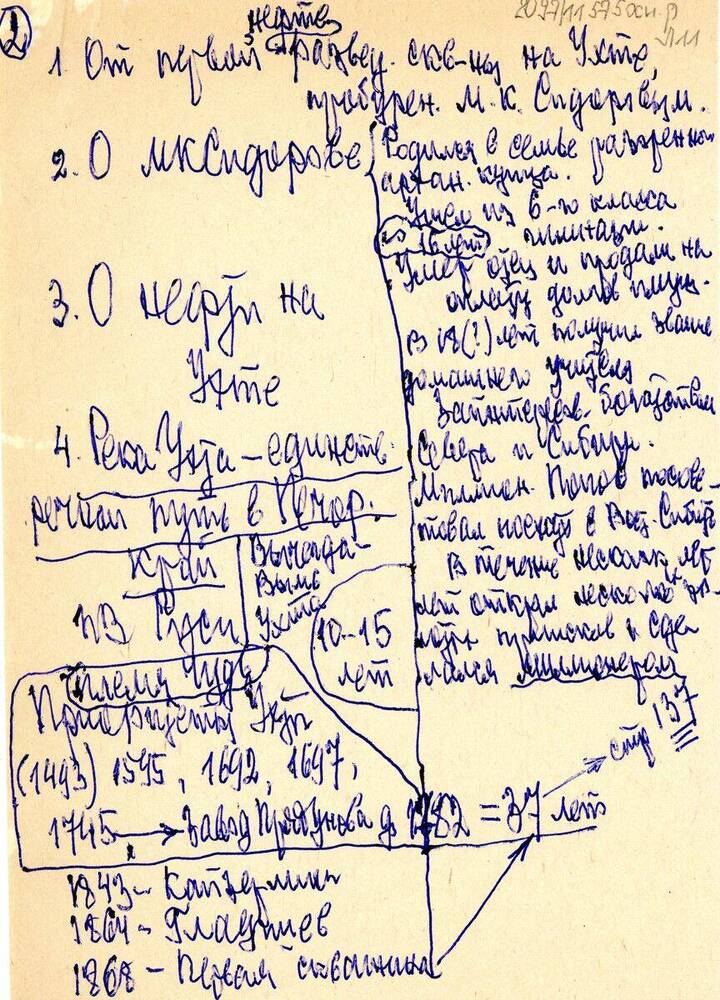 2
нефтев
1. От первой развед. скв-ны на Ухте,
пробурен. М.К. Сидоровым.
2. О МКСидорове
Родился в семье разорен.
архан. купца.
Ушел из 6-го класса
гимназии.
16 лет
Умер отец и продали на
оплату долгов
В 18(?) лет получил звание
домашнего учителя
Заинтересов. богатством
Севера и Сибири.
Миллион. Попов посове-
товал поехать в Вост. Сибирь
В течение несколк. лет
открыл несколько
приисков и сде
лался миллионером
3. О нефти на
Ухте
4. Река Ухта - единств.
речной путь в Печор.
край
из Руси
Вычегда-
Вымь
Ухта
10-15
лет
племя Чудь
Приоритеты Ухты
(1493) 1595, 1692, 1697,
1745 → Завод Прядунова до 1782 = 37 лет
стр 137
1843 - Кайзерлинг
1864 - Гладышев
1868 - Первая скважина